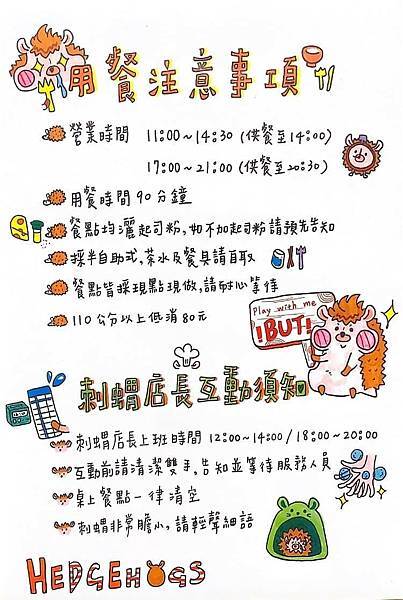 用餐注意事項
營業時間 11:00~14:30 (供餐至14:00)
17:00~21:00 (供餐至20:30)
用餐時間90分鐘
餐點均灑起司粉，如不加起司粉請預先告知
採半自助式，茶水及餐具請自取
餐點皆採現點現做，請耐心等待
110公分以上低消80元
Play with me
!BUT!
刺蝟店長互動須知
刺蝟店長上班時間 12:00~14:00/18:00~20:00
互動前請清潔雙手，告知並等待服務人員
桌上餐點一律清空
刺蝟非常膽小，請輕聲細語
HEDGEHOGS